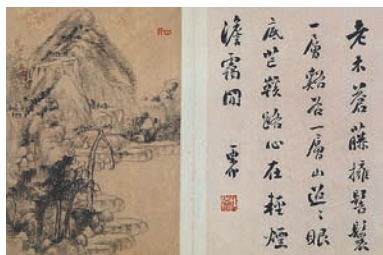 老木蒼藤擁髻鬟
一層谿谷一層山遊〻眼
底芒鞵路心在輕煙
澹靄間